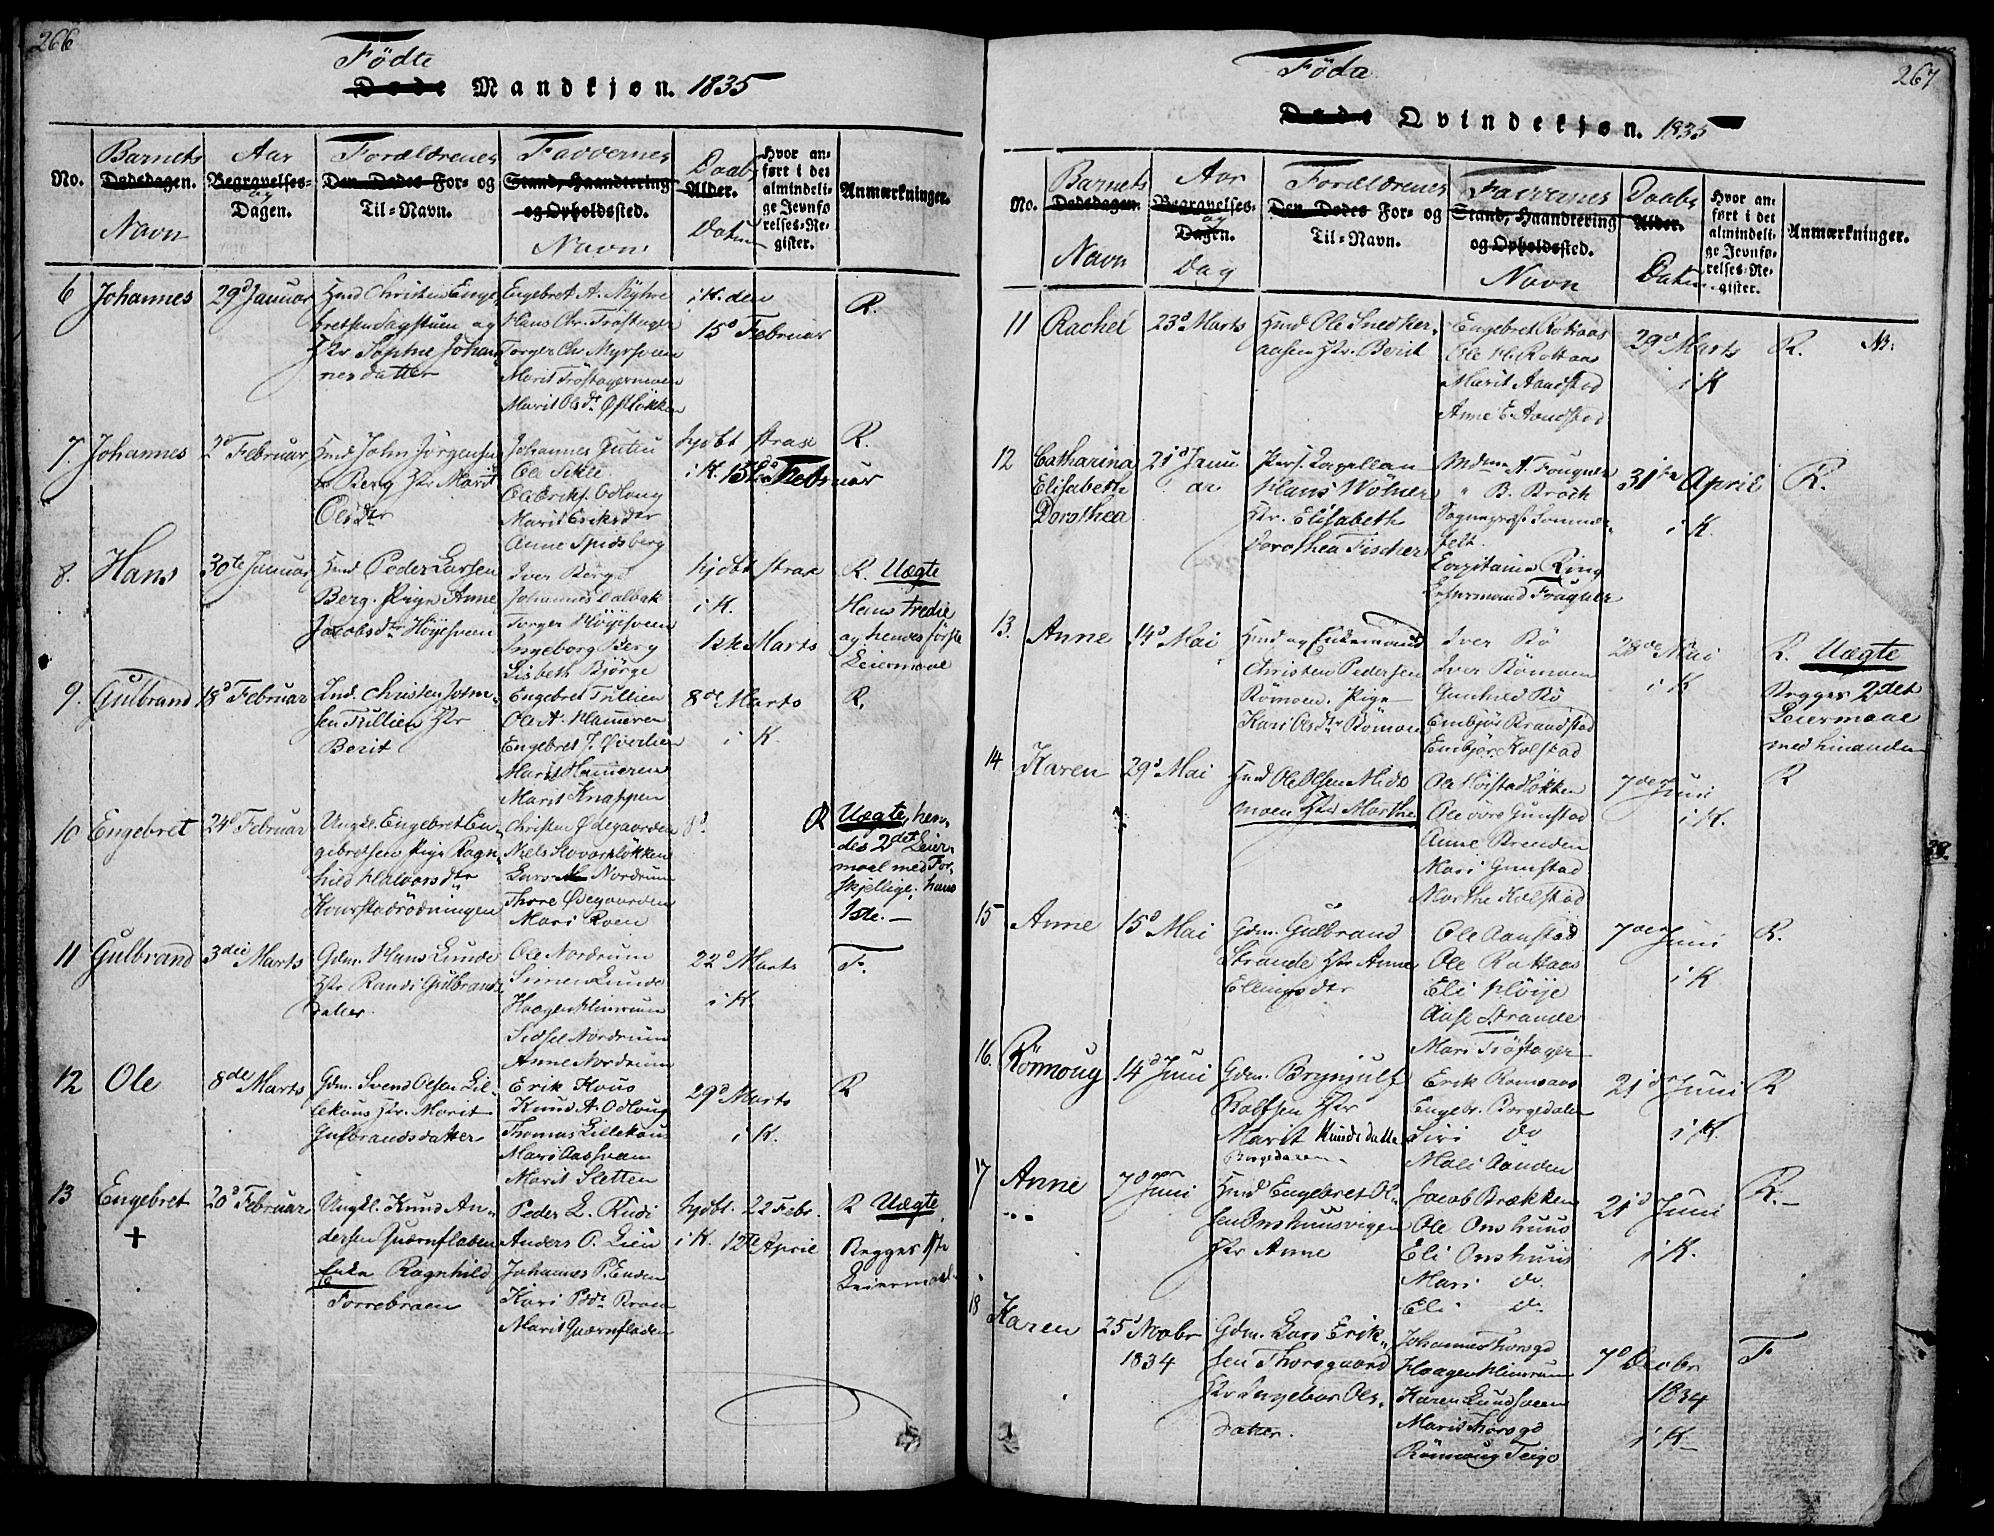 266
Födte
Døde Mandkjøn. 1835
No.
Barnets
Dødsdagen.
Navn
Aar
Begravelses-
og
Dagen.
Forældrenes
Den Dødes For- og
Til-Navn.
Faddernes
Stand, Haandtering
og Opholdssted.
Navn
Daabs
Alder.
Datum
Hvor an-
ført i det
almindeli-
ge Jevnfø-
relses-Re-
gister.
Anmærkninger.
6 Johannes 29d Januar
Hmd Christen Enge-
bretsen
Hst. Sophie Johan-
nesdatter
Engebret A. Myhre
Hans Chr. Tröstager
Torger Ch. Myrsveen
Marit Tröstagermoen
Marit Olsdr
i K. den
15d Februar
R.
7. Johannes 2d Februar
Hmd John Jörgensen
Berg Hst. Marit
Olsdtr
Johannes
Ole
Marit Eriksdtr
Anne
hjdbt strax
i K. Februar
R.
8. Hans 30te Januar
Hmd Peder Larsen
Berg. Pige Anne
Jacobsdtr Höyesveen
Iver Berg
Johannes Dalbak
Torger Höyesveen
Ingeborg Berg
Lisbeth Bjørge
hjdbt strax
i K.
1ste Marts
R. Uægte
Hans tredie
og hendes förste
Leiermaal
9. Gulbrand 18d Februar
Ind. Christen
sen Tullien Hst
Berit
Engebret Tullien
Ole A. Hammeren
Engebret J. Øverlien
Marit Hammeren
Marit Knappen
8de Marts
i K
R.
10 Engebret 24d Februar
Ungkl. Engebret En-
gebretsen Pige Ragn-
hild Halvorsdtr
Christen Ødegaarden
Niels
Lars Nordrum
Thore Ødegaarden
Mari Roen
8d
R Uægte, hen-
des 2det Leier-
maal med For-
skjellige, hans
1ste.
11 Gulbrand 3die Marts
Gdm. Hans Lunde
Hst Randi Gulbrands
datter
Ole Nordrum
Simen Lunde
Haagen Klimrum
Sidsel Nordrum
Anne Nordrum
22d Marts
i K.
F.
12 Ole 8de Marts
Gdm. Svend Olsen Lil-
lekous Hst. Marit
Gulbrandsdatter
Erik Kous
Knud A. Odloug
Thomas Lillekous
Mari Aassveen
Marit Sletten
29d Marts
i K.
R
13 Engebret
+
20d Februar
Ungkl. Knud An-
dersen Quærnfladen
Enke Ragnhild
Forrebraen
Peder L. Rudi
Anders O. Lien
Johannes P. Enden
Kari Pdr. Braen
Marit Quærnfladen
hjdbt. 22 Febr.
i K. 12te April
R Uægte
Begges 1ste
Leiermaal
267
Föda
Døde Qvindekjøn. 1835
No.
Barnets
Dødsdagen.
Navn
Aar
Begravelses-
og
Dagen.
Dag
Forældrenes
Den Dødes For- og
Til-Navn.
Faddernes
Stand, Haandtering
og Opholdssted.
Navn
Daabs
Alder.
Datum
Hvor an-
ført i det
almindeli-
ge Jevnfø-
relses-Re-
gister.
Anmærkninger.
11 Rachel 23d Marts
Hmd Ole Snedker-
aasen Hst. Berit
Engebret Rokaas
Ole H. Rokaas
Marit Aandstad
Anne E. Aandstad
29d Marts
i K
R.
12 Catharina
Elisabeth
Dorothea
21d Janu
ar
Pers. Capellan
Hans Wölner
Hst. Elisabeth
Dorothea Fischer
Mdme A. Fougner
" B. Broch
Sognepræst Sommer-
felt.
Capitaine Ring
Lehnsmand Fougner
31te April
i K.
R.
13. Anne 14d Mai
Hmd og Enkemand
Christen Pedersen
Römoen. Pige
Kari Olsdtr Römoen
Iver Bö
Iver Römoen
Gunhild Bö
Embjör Brandstad
Embjör Kolstad
28de Mai
i K
R. Uægte
Begges 2det
Leiermaal
med hinanden
14 Karen 29d Mai
Hmd Ole Olsen Midt-
moen Hst Marthe
Ole Höistadlökken
Ole övre Gunstad
Anne Brenden
Mari Gunstad
Marthe Kolstad
7de Juni
i K.
R
15 Anne 15d Mai
Gdm. Gulbrand
Strande Hst Anne
Clemetsdtr
Ole Aanstad
Ole Rokaas
Eli Höije
Aase Strande
Mari Tröstager
7de Juni
i K
R.
16. Römoug 14d Juni
Gdm. Brynjulf
Rolfsen Hst
Marit Knudsdatter
Borgedalen
Erik Romsaas
Engebr. Borgedalen
Siri do
Mali Aanden
21de Juni
i K.
R
17 Anne 7de Juni
Hmd Engebret Ol-
sen Onshuusvigen
Hst Anne
Jacob Brækken
Ole Onshuus
Eli Onshuus
Mari do.
Eli do
21d Juni
i K.
R.
18 Karen 25d Novbr
1834
Gdm. Lars Erik-
sen Thorsgaard
Hst Ingebor Ols-
datter.
Johannes Thorsgd
Haagen Klimrum
Karen Lundsveen
Marit Thorsgd
Römoug Teige
7d Decbr
1834
i K
F